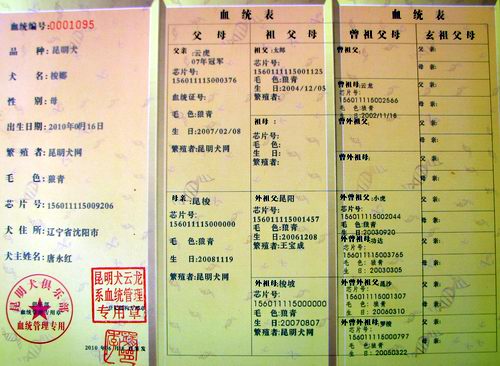 血统编号:0001095
品 种:昆明犬
犬 名:梭娜
性 别:母
出生日期:2010年0月16日
繁 殖 者:昆明犬网
毛 色:狼青
芯 片 号:156011115009206
犬 住 所:辽宁省沈阳市
犬主姓名:唐永红
昆明犬俱乐部
血统管理专用
昆明犬云龙
系血统管理
专用章
血统表
父母
祖父母
父亲:云虎
07年冠军
芯片号:
156011115000376
血统证号:
毛 色:狼青
生 日:2007/02/08
繁殖者:昆明犬网
母亲:昆梭
芯片号:
156011115000000
毛 色:狼青
生 日:20081119
繁殖者:昆明犬网
祖父:太郎
芯片号:
156011115001125
毛 色:狼青
生 日:2004/12/05
繁殖者:
祖母:
芯片号:
毛 色:
生 日:
繁殖者:
外祖父:昆阳
芯片号:
156011115001457
毛 色:狼青
生 日:20061208
繁殖者:王宝成
外祖母:梭坡
芯片号:
156011115000000
毛 色:狼青
生 日:20070807
繁殖者:昆明犬网
血统表
曾祖父母
玄祖父母
曾祖父:
曾祖母:云龙
芯片号:
156011115002566
毛 色:狼青
生 日:2002/11/16
曾外祖父:
曾外祖母:
外曾祖父:小虎
芯片号:
156011115002044
毛 色:狼青
生 日:20030920
外曾祖母:功达
芯片号:
156011115003765
毛 色:狼青
生 日:20030305
芯片号:
156011115001307
毛 色:狼青
生 日:20060310
芯片号:
156011115000797
毛 色:狼青
生 日:20050322
父亲:
母亲:
父亲:
母亲:
父亲:
母亲:
父亲:
母亲:
父亲:
母亲:
父亲:
母亲:
父亲:
母亲:
父亲:
母亲: